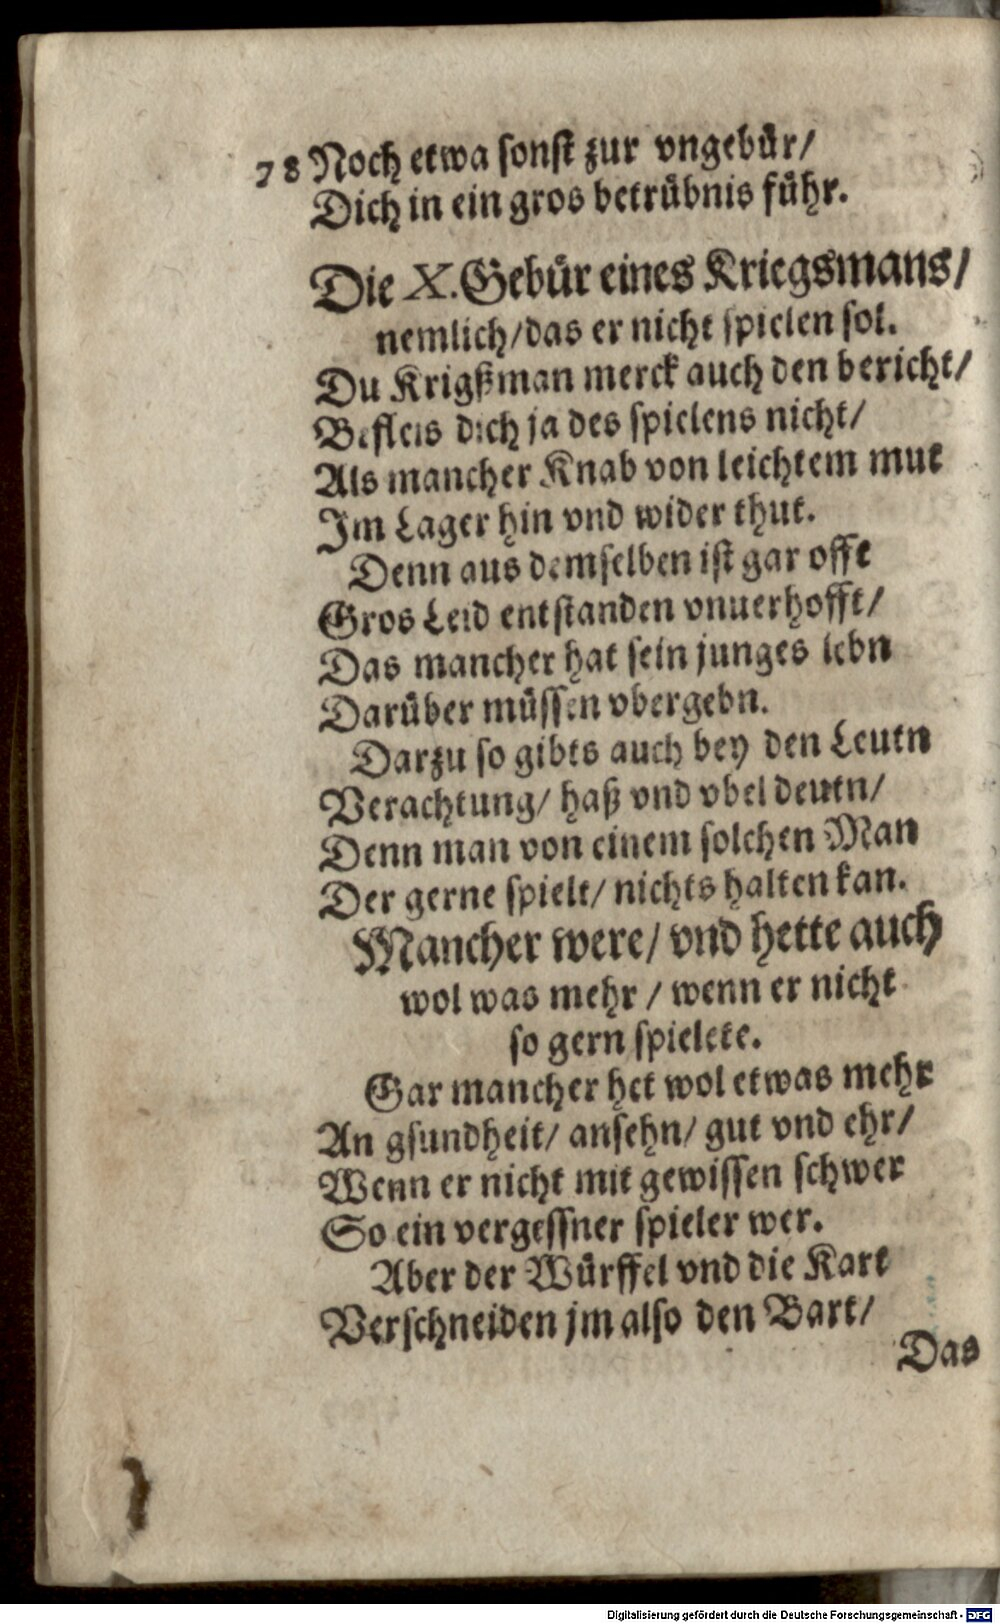 78 Noch etwa sonst zur vngebür/
Dich in ein gros betrübnis führ.
Die X. Gebür eines Kriegsmans/
nemlich/das er nicht spielen sol.
Du Krigßman merck auch den bericht/
Befleis dich ja des spielens nicht/
Als mancher Knab von leichtem mut
Im Lager hin vnd wider thut.
Denn aus demselben ist gar offt
Gros Leid entstanden vnuerhofft/
Das mancher hat sein junges lebn
Darüber müssen vbergebn.
Darzu so gibts auch bey den Leutn
Verachtung/ haß vnd vbel deutn/
Denn man von einem solchen Man
Der gerne spielt/ nichts halten kan.
Mancher were/ vnd hette auch
wol was mehr / wenn er nicht
so gern spielete.
Gar mancher het wol etwas mehr
An gsundheit/ ansehn/ gut vnd ehr/
Wenn er nicht mit gewissen schwer
So ein vergessner spieler wer.
Aber der Würffel vnd die Kart
Verschneiden jm also den Bart/
Das
Digitalisierung gefördert durch die Deutsche Forschungsgemeinschaft - DFG